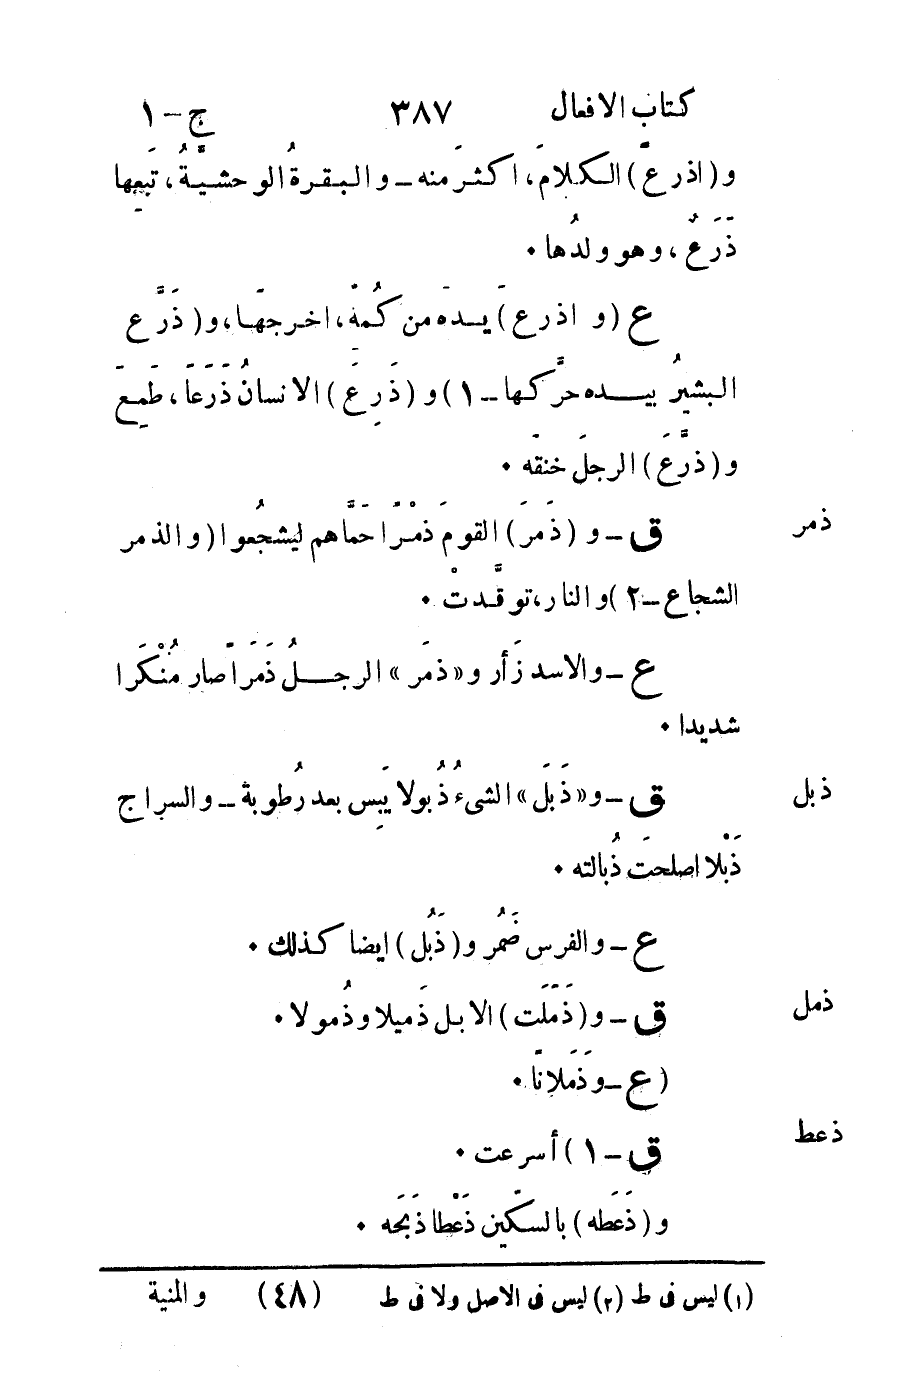 كتاب الافعال ٣٨٧ ج – ١
و (اذرع) الكلامَ، اكثَر منه – والبقرةُ الوحشيَّةُ، تَبِعها
ذَرَعٌ، وهو ولدُها ٠
ع (و اذرع) يَده من كُمّهَ، اخرجهَا، و( ذَرَّع
البشيرُ بيده حرَّكها – ١) و (ذَرِعَ) الانسانُ ذَرَعَا، طَمِعَ
و (ذرَّعَ) الرجلَ خنقَه ٠
ذمر
ق – و (ذَمَرَ) القومَ ذَمْرًا حَمَّاهم ليشجُعوا (والذمر
الشجاع – ٢) والنار، توقَّدتْ ٠
ع – والاسد زَأر و «ذمَر» الرجلُ ذَمَرَا صار مُنْكَرا
شديدا ٠
ذبل
ق – و «ذَبَلَ» الشىءُ ذُبولا يَبِس بعد رُطوبة – والسراج
ذَبْلا اصلحتَ ذُبالته ٠
ع – والفرس ضَمُر و (ذَبُل) ايضا كذلك ٠
ذمل
ق – و (ذَمَلَت) الابل ذَميلا وذُمولا ٠
(ع – وذَمَلانًا ٠
ذعط
ق – ١) أسرعت ٠
و (ذَعَطه) بالسكّين ذَعْطا ذَبَحَه ٠
(١) ليس فى ط (٢) ليس فى الاصل ولا فى ط (٤٨) والمنية